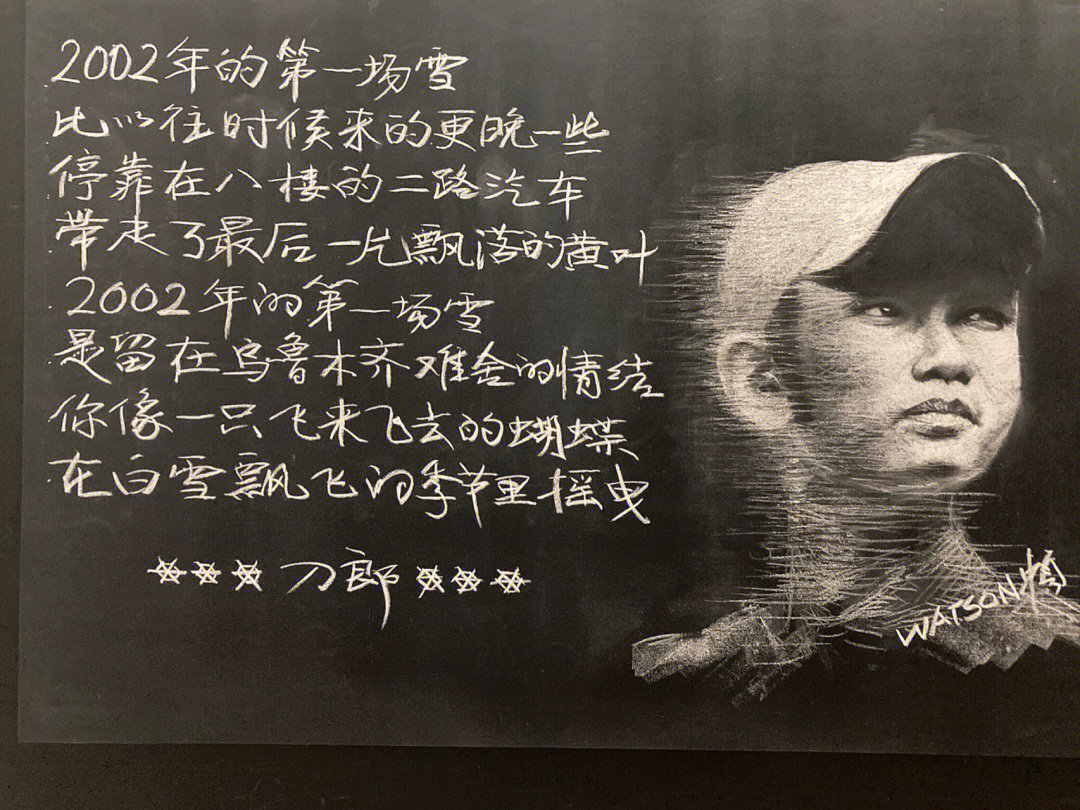 2002年的第一场雪
比以往时候来的更晚一些
停靠在八楼的二路汽车
带走了最后一片飘落的黄叶
2002年的第一场雪
是留在乌鲁木齐难舍的情结
你像一只飞来飞去的蝴蝶
在白雪飘飞的季节里摇曳
刀郎
WATSON